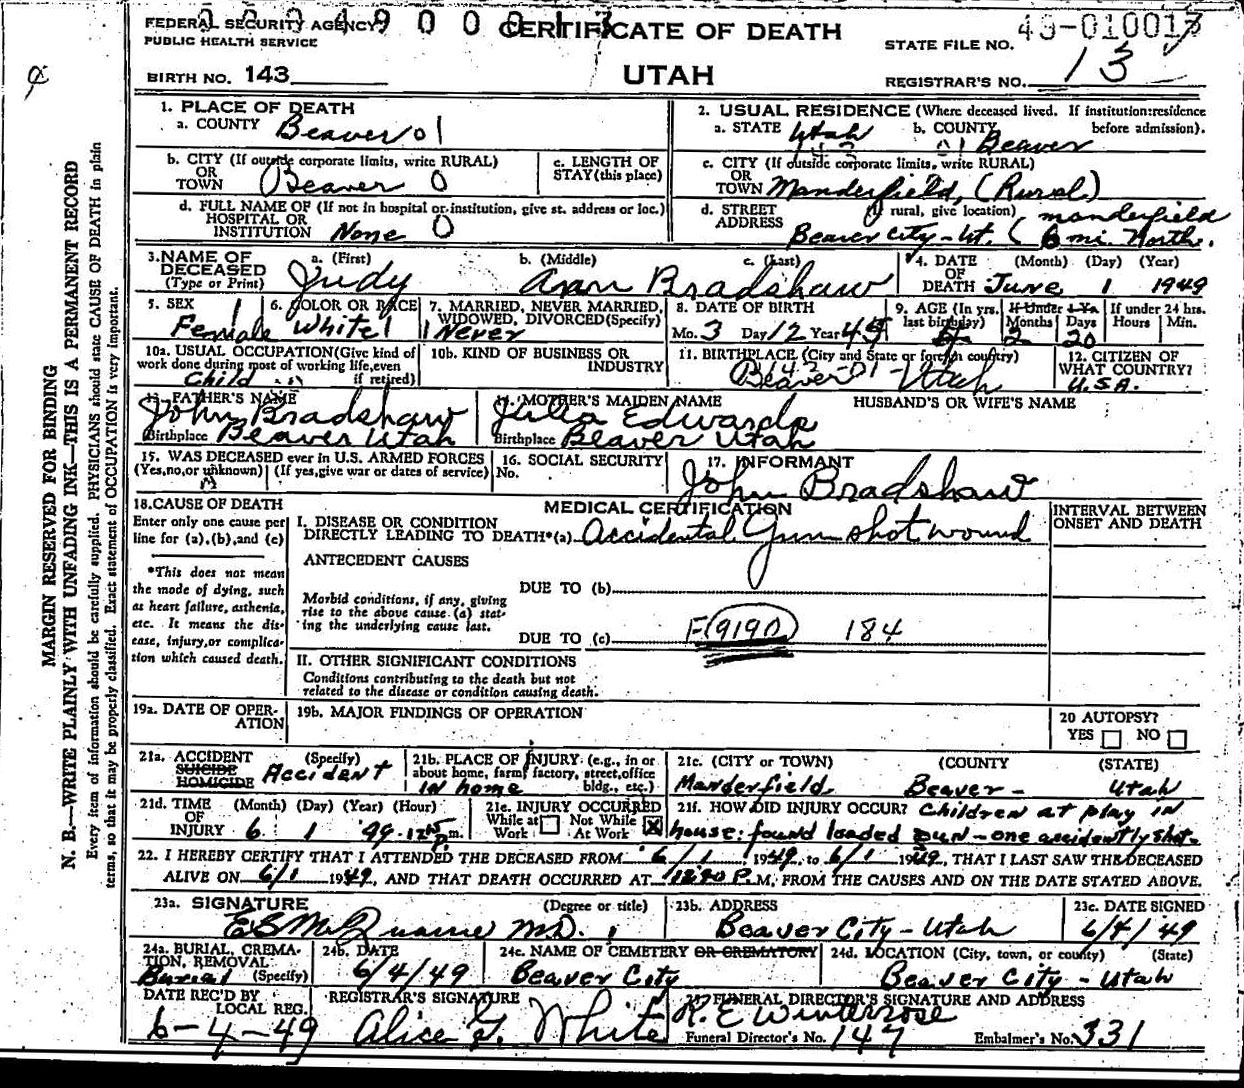 FEDERAL SECURITY AGENCY
PUBLIC HEALTH SERVICE
CERTIFICATE OF DEATH
STATE FILE NO. 49-010013
BIRTH NO. 143
UTAH
REGISTRAR'S NO. 13
MARGIN RESERVED FOR BINDING
N. B.—WRITE PLAINLY WITH UNFADING INK—THIS IS A PERMANENT RECORD
Every item of information should be carefully supplied. PHYSICIANS should state CAUSE OF DEATH in plain
terms, so that it may be properly classified. Exact statement of OCCUPATION is very important.
1. PLACE OF DEATH
a. COUNTY Beaver 01
b. CITY (If outside corporate limits, write RURAL)
OR
TOWN Beaver 0
c. LENGTH OF
STAY (this place)
d. FULL NAME OF (If not in hospital or institution, give st. address or loc.)
HOSPITAL OR
INSTITUTION None 0
2. USUAL RESIDENCE (Where deceased lived. If institution: residence
before admission).
a. STATE Utah b. COUNTY Beaver
c. CITY (If outside corporate limits, write RURAL)
OR
TOWN Manderfield, (Rural)
d. STREET (If rural, give location) Manderfield
ADDRESS Beaver City - Ut. (6 mi. North.
3. NAME OF
DECEASED
(Type or Print)
a. (First) b. (Middle) c. (Last)
Judy Ann Bradshaw
4. DATE (Month) (Day) (Year)
OF
DEATH June 1 1949
5. SEX 1
Female
6. COLOR OR RACE
White 1
7. MARRIED, NEVER MARRIED,
WIDOWED, DIVORCED (Specify)
1 Never
8. DATE OF BIRTH
Mo. 3 Day 12 Year 45
9. AGE (In yrs. last birthday) If Under 1 Yr. If under 24 hrs.
Months Days Hours Min.
4 2 20
10a. USUAL OCCUPATION (Give kind of
work done during most of working life, even
if retired)
Child
10b. KIND OF BUSINESS OR
INDUSTRY
11. BIRTHPLACE (City and State or foreign country)
Beaver - Utah
12. CITIZEN OF
WHAT COUNTRY?
U.S.A.
13. FATHER'S NAME
John Bradshaw
Birthplace Beaver Utah
14. MOTHER'S MAIDEN NAME
Julia Edwards
Birthplace Beaver Utah
HUSBAND'S OR WIFE'S NAME
15. WAS DECEASED ever in U.S. ARMED FORCES
(Yes, no, or unknown) (If yes, give war or dates of service)
16. SOCIAL SECURITY
No.
17. INFORMANT
John Bradshaw
18. CAUSE OF DEATH
Enter only one cause per
line for (a), (b), and (c)
*This does not mean
the mode of dying, such
as heart failure, asthenia,
etc. It means the dis-
ease, injury, or complica-
tion which caused death.
MEDICAL CERTIFICATION
INTERVAL BETWEEN
ONSET AND DEATH
I. DISEASE OR CONDITION
DIRECTLY LEADING TO DEATH*(a) Accidental Gun shot wound
ANTECEDENT CAUSES
DUE TO (b)
Morbid conditions, if any, giving
rise to the above cause (a) stat-
ing the underlying cause last.
DUE TO (c) 184
II. OTHER SIGNIFICANT CONDITIONS
Conditions contributing to the death but not
related to the disease or condition causing death.
19a. DATE OF OPER-
ATION
19b. MAJOR FINDINGS OF OPERATION
20 AUTOPSY?
YES NO
21a. ACCIDENT (Specify)
SUICIDE
HOMICIDE
Accident
21b. PLACE OF INJURY (e.g., in or
about home, farm, factory, street, office
bldg., etc.)
In home
21c. (CITY or TOWN) (COUNTY) (STATE)
Manderfield Beaver - Utah
21d. TIME (Month) (Day) (Year) (Hour)
OF
INJURY 6 1 49
21e. INJURY OCCURRED
While at Work Not While At Work X
21f. HOW DID INJURY OCCUR? Children at play in
house: found loaded gun - one accidently shot.
22. I HEREBY CERTIFY THAT I ATTENDED THE DECEASED FROM 6/1 1949, to 6/1 1949, THAT I LAST SAW THE DECEASED
ALIVE ON 6/1 1949, AND THAT DEATH OCCURRED AT P.M, FROM THE CAUSES AND ON THE DATE STATED ABOVE.
23a. SIGNATURE (Degree or title)
MD.
23b. ADDRESS
Beaver City - Utah
23c. DATE SIGNED
6/4/49
24a. BURIAL, CREMA-
TION, REMOVAL
Burial (Specify)
24b. DATE
6/4/49
24c. NAME OF CEMETERY OR CREMATORY
Beaver City
24d. LOCATION (City, town, or county) (State)
Beaver City - Utah
DATE REC'D BY
LOCAL REG.
6-4-49
REGISTRAR'S SIGNATURE
Alice G. White
25. FUNERAL DIRECTOR'S SIGNATURE AND ADDRESS
R. E Winterrose
Funeral Director's No. 147 Embalmer's No. 331